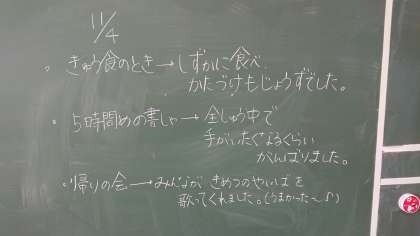 11/4
。きゅう食のとき→しずかに食べ、
かたづけもじょうずでした。
・5時間めの書しゃ→全しゅう中で
手がいたくなるくらい
がんばりました。
・帰りの会→みんなが きめつのやいばを
歌ってくれました。(うまかった〜♪)